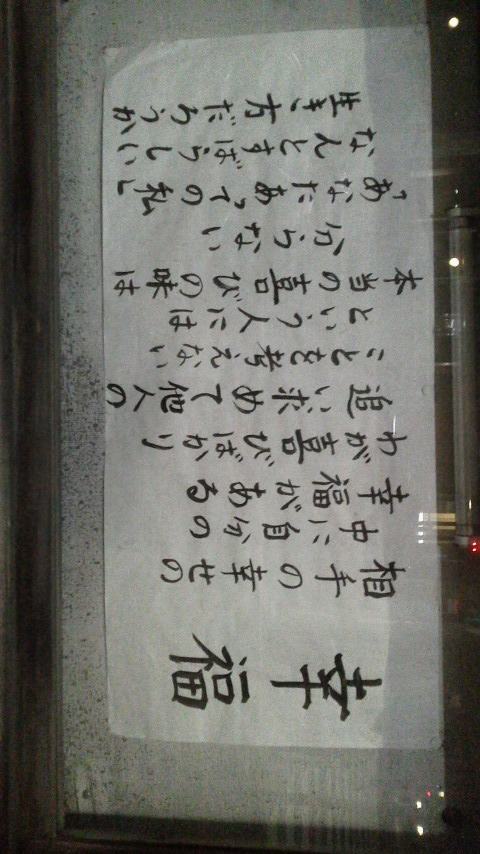 幸福
相手の幸せの
中に自分の
幸福がある
わが喜びばかり
追い求めて他人の
ことを考えない
という人には
本当の喜びの味は
分らない
「あなたあっての私」
なんとすばらしい
生き方だろうか